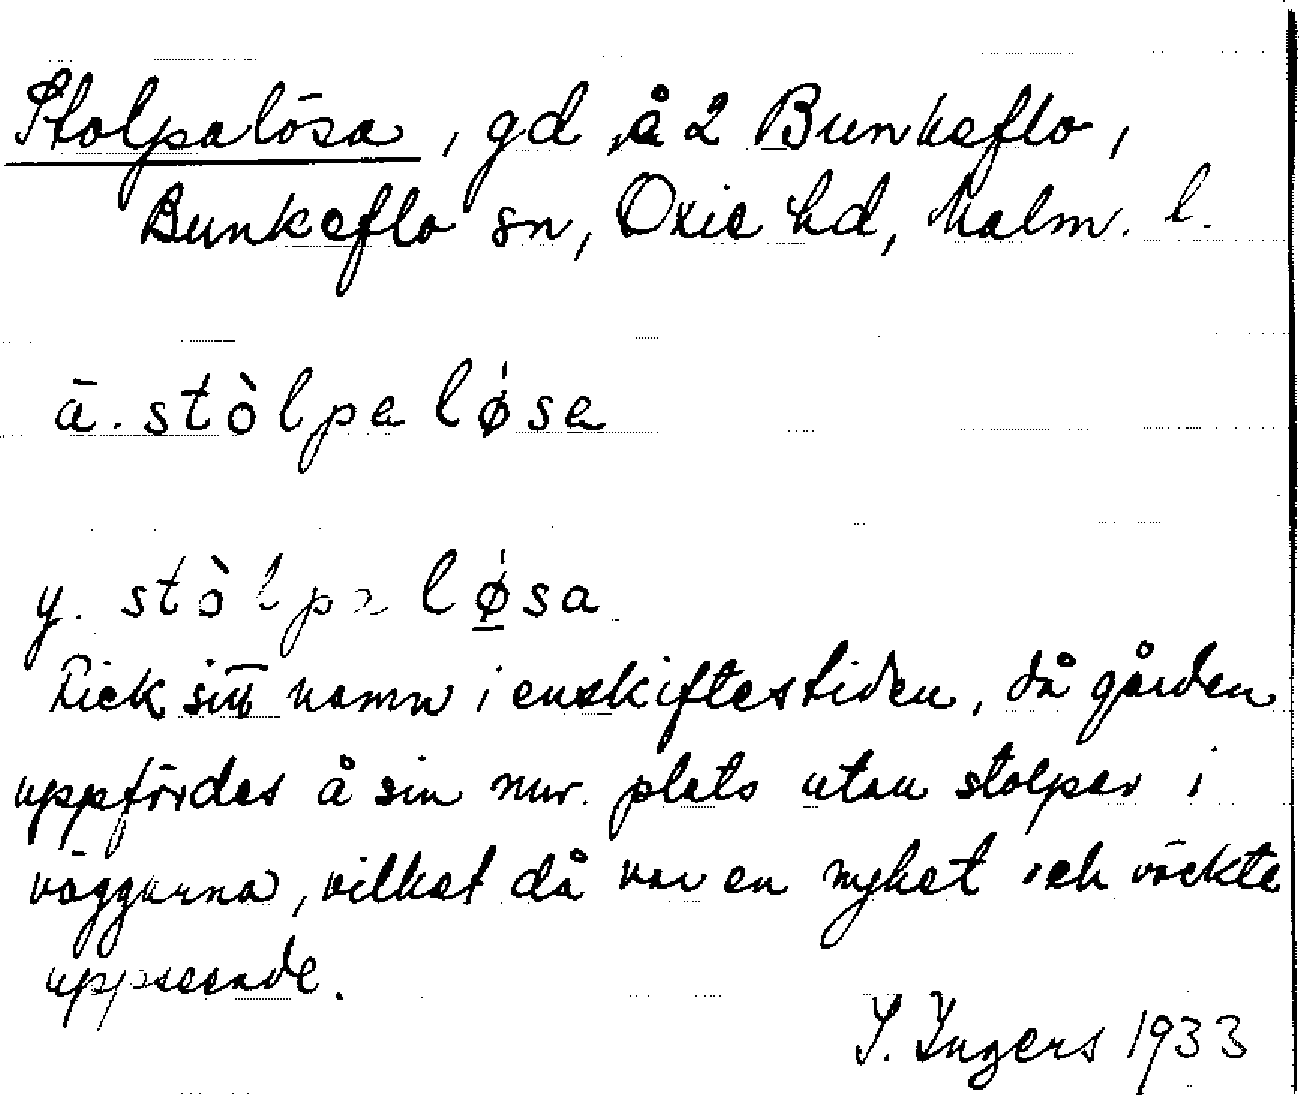 Stolpalösa, gd å 2 Bunkeflo,
Bunkeflo sn, Oxie hd, Malm. l.
ä. stòlpa lø̍sa
y. stòlpa lø̍sa
Fick sitt namn i enskiftestiden, då gården
uppfördes å sin nuv. plats utan stolpar i
väggarna, vilket då var en nyhet och väckte
uppseende.
I. Ingers 1933